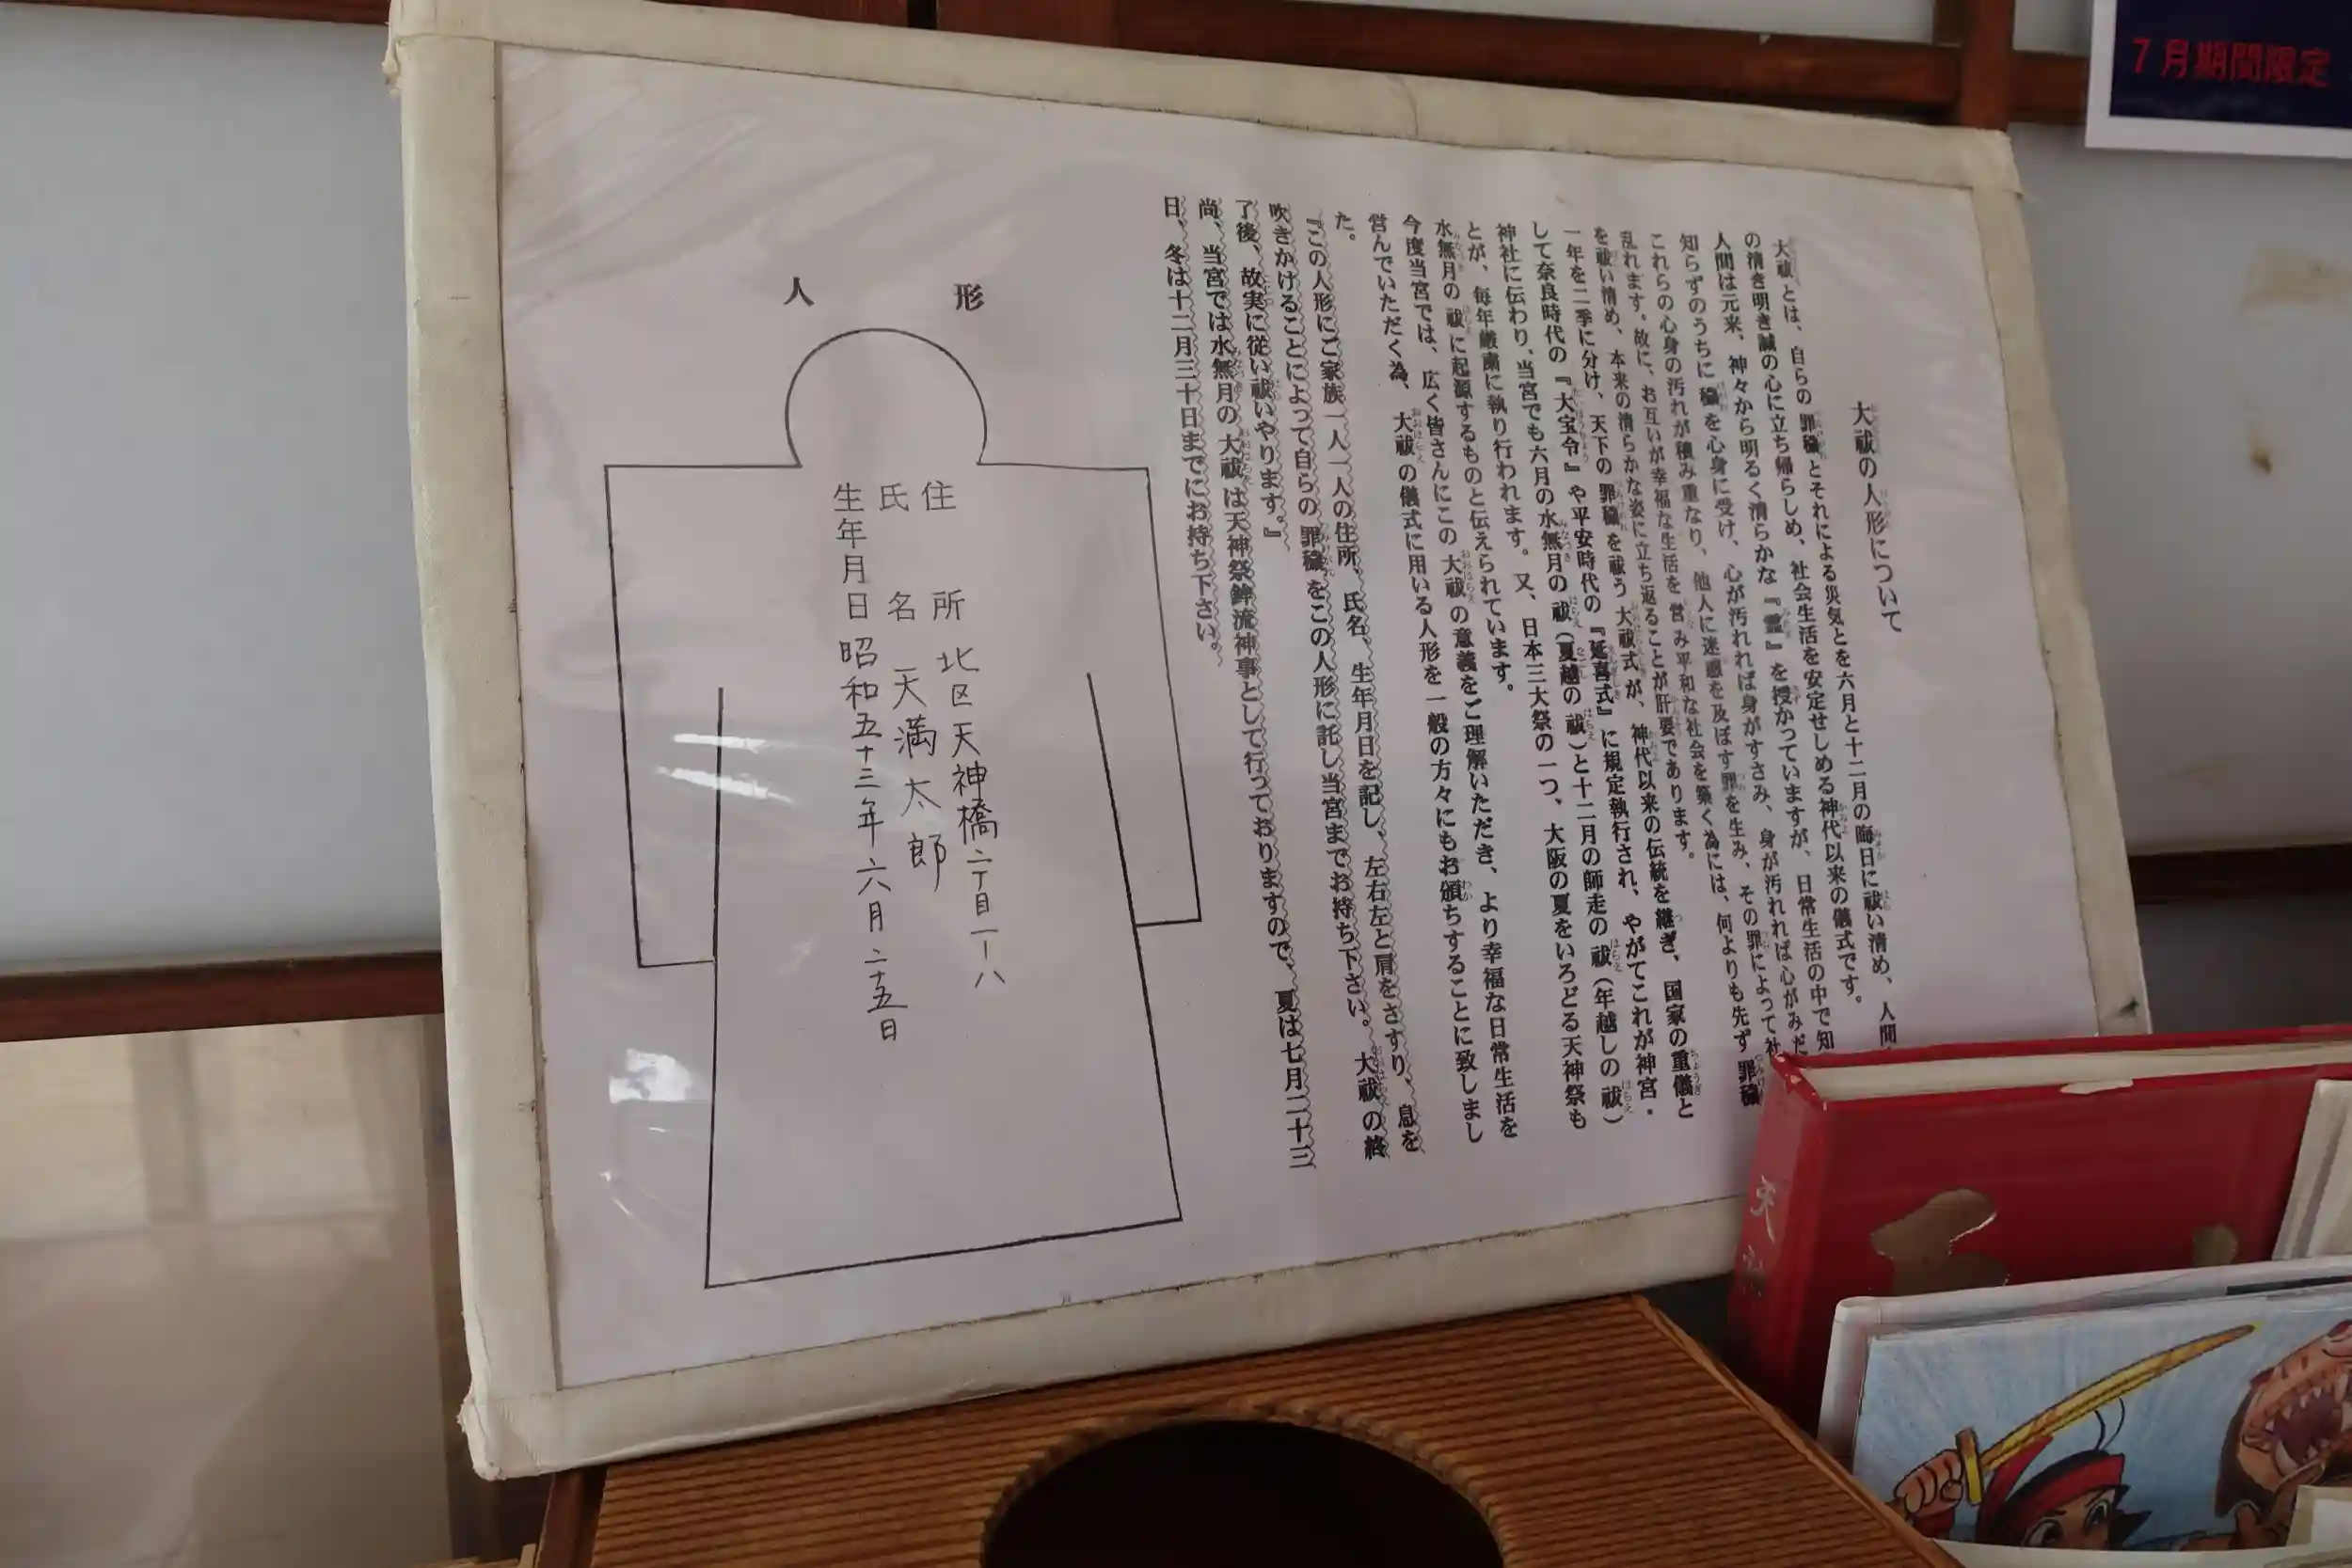 7月期間限定
大祓の人形について
大祓とは、自らの罪穢とそれによる災気とを六月と十二月の晦日に祓い清め、人間
の清き明き誠の心に立ち帰らしめ、社会生活を安定せしめる神代以来の儀式です。
人間は元来、神々から明るく清らかな『霊』を授かっていますが、日常生活の中で知
知らずのうちに穢を心身に受け、心が汚れれば身がすさみ、身が汚れれば心がみだ
これらの心身の汚れが積み重なり、他人に迷惑を及ぼす罪を生み、その罪によって社
乱れます。故に、お互いが幸福な生活を営み平和な社会を築く為には、何よりも先ず罪穢
を祓い清め、本来の清らかな姿に立ち返ることが肝要であります。
一年を二季に分け、天下の罪穢を祓う大祓式が、神代以来の伝統を継ぎ、国家の重儀と
して奈良時代の『大宝令』や平安時代の『延喜式』に規定執行され、やがてこれが神宮・
神社に伝わり、当宮でも六月の水無月の祓(夏越の祓)と十二月の師走の祓(年越しの祓)
とが、毎年厳粛に執り行われます。又、日本三大祭の一つ、大阪の夏をいろどる天神祭も
水無月の祓に起源するものと伝えられています。
今度当宮では、広く皆さんにこの大祓の意義をご理解いただき、より幸福な日常生活を
営んでいただく為、大祓の儀式に用いる人形を一般の方々にもお頒ちすることに致しまし
た。
『この人形にご家族一人一人の住所、氏名、生年月日を記し、左右左と肩をさすり、息を
吹きかけることによって自らの罪穢をこの人形に託し当宮までお持ち下さい。大祓の終
了後、故実に従い祓いやります。』
尚、当宮では水無月の大祓は天神祭鉾流神事として行っておりますので、夏は七月二十三
日、冬は十二月三十日までにお持ち下さい。
人形
住所 北区天神橋二丁目一ー八
氏名 天満太郎
生年月日 昭和五十三年六月二十五日